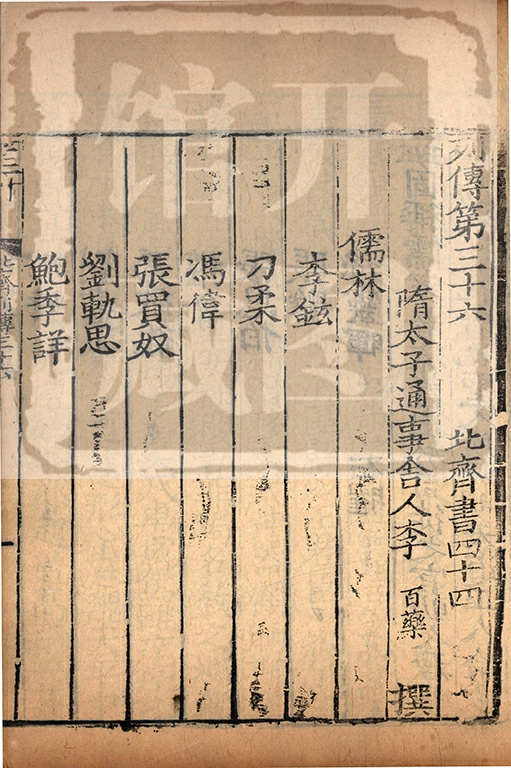 列傳第三十六 北齊書四十四
隋太子通事舍人李 百藥 撰
儒林
李鉉
刁柔
馮偉
張買奴
劉軌思
鮑季詳
北齊列傳三十六